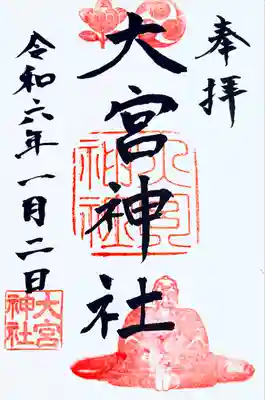 奉拝
大宮神社
大宮
神社
令和六年一月二日
大宮
神社